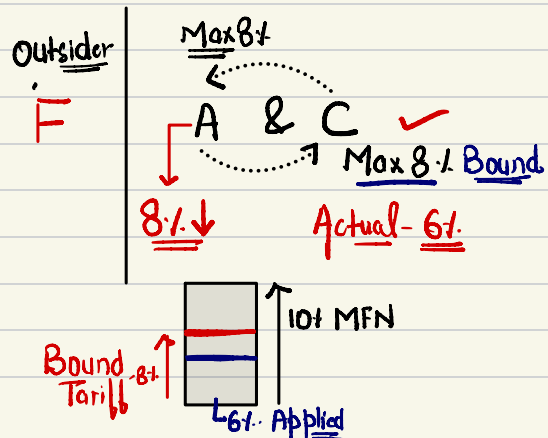 Outsider
F
Max 8%
A & C
Max 8% Bound
8%
Actual - 6%
10% MFN
Bound
Tari
8%
6% Applied